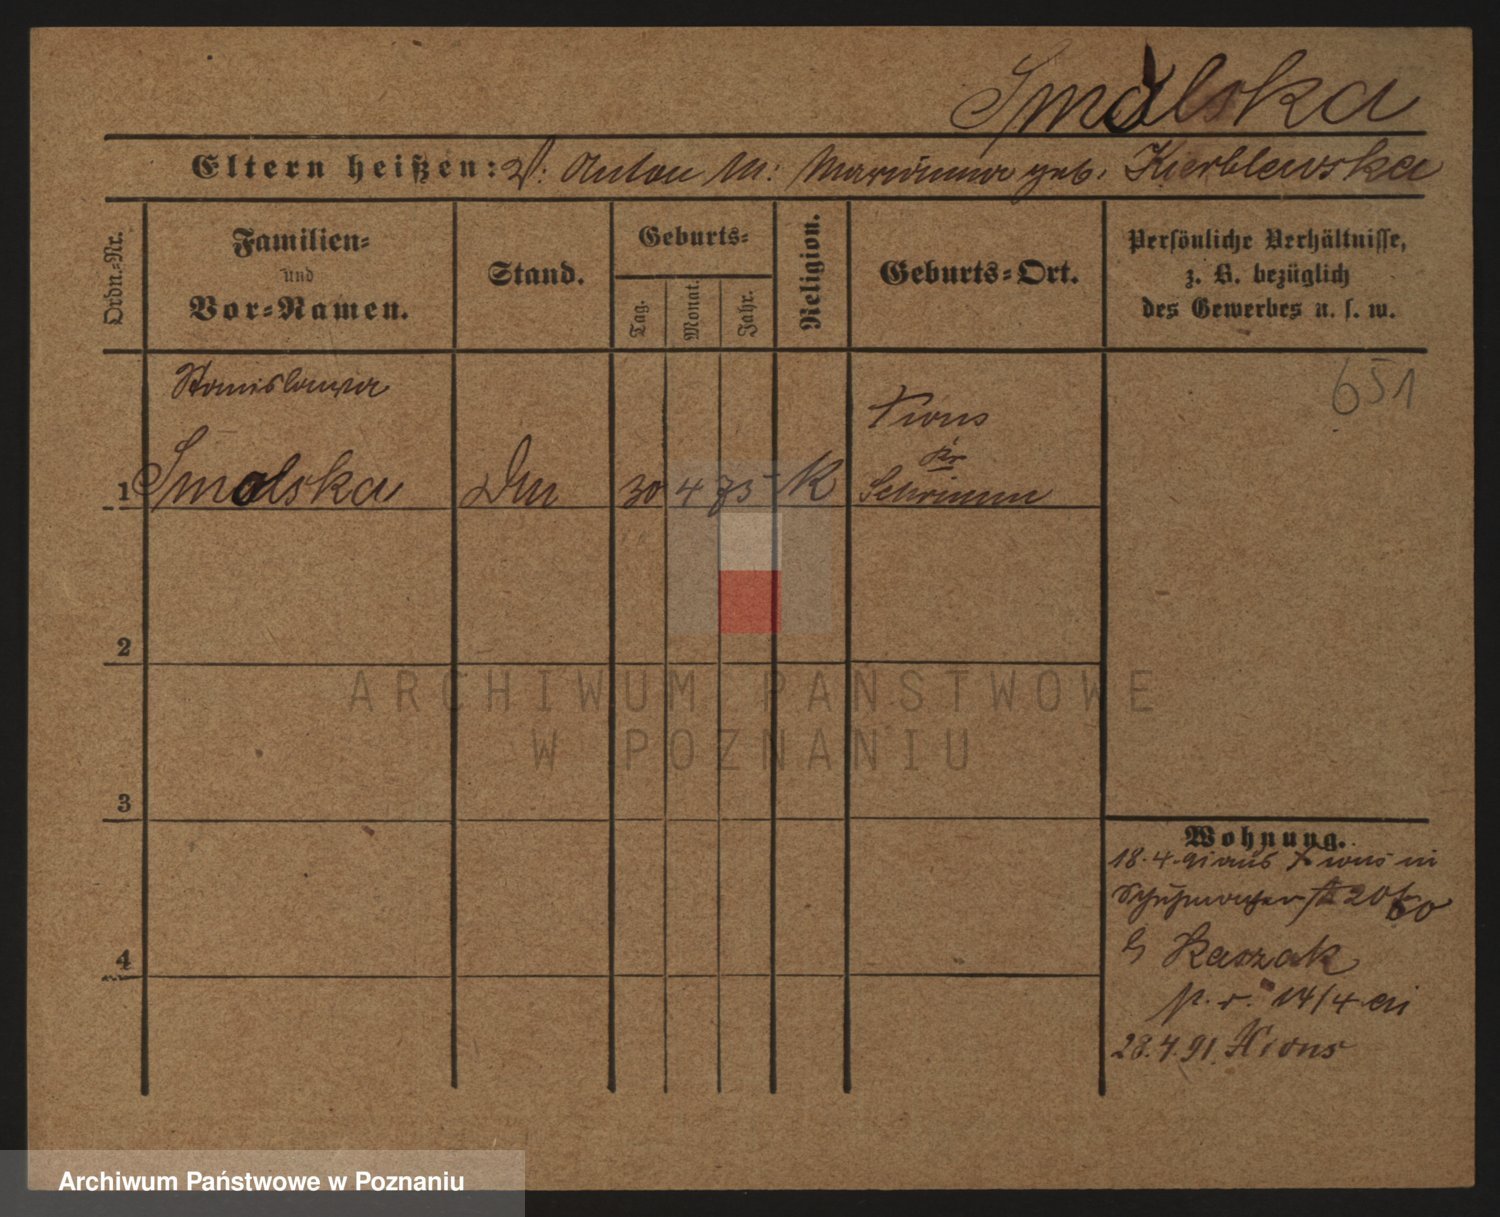 Smolska
Eltern heißen: V: Anton M: Marianna geb. Kierblewska
Ordn.-Nr.
Familien-
und
Vor-Namen.
Stand.
Geburts-
Tag.
Monat.
Jahr.
Religion.
Geburts-Ort.
Persönliche Verhältnisse,
z. B. bezüglich
des Gewerbes u. s. w.
651
Stanislawa
Xions
Kr
1 Smolska 30 4 75 K Schrimm
2
3
4
Wohnung.
18.4.91 aus Xions in
Schuhmacher 20
b Kaszak
p. r. 14/4 91
28.4.91 Xions
ARCHIWUM PAŃSTWOWE
W POZNANIU
Archiwum Państwowe w Poznaniu